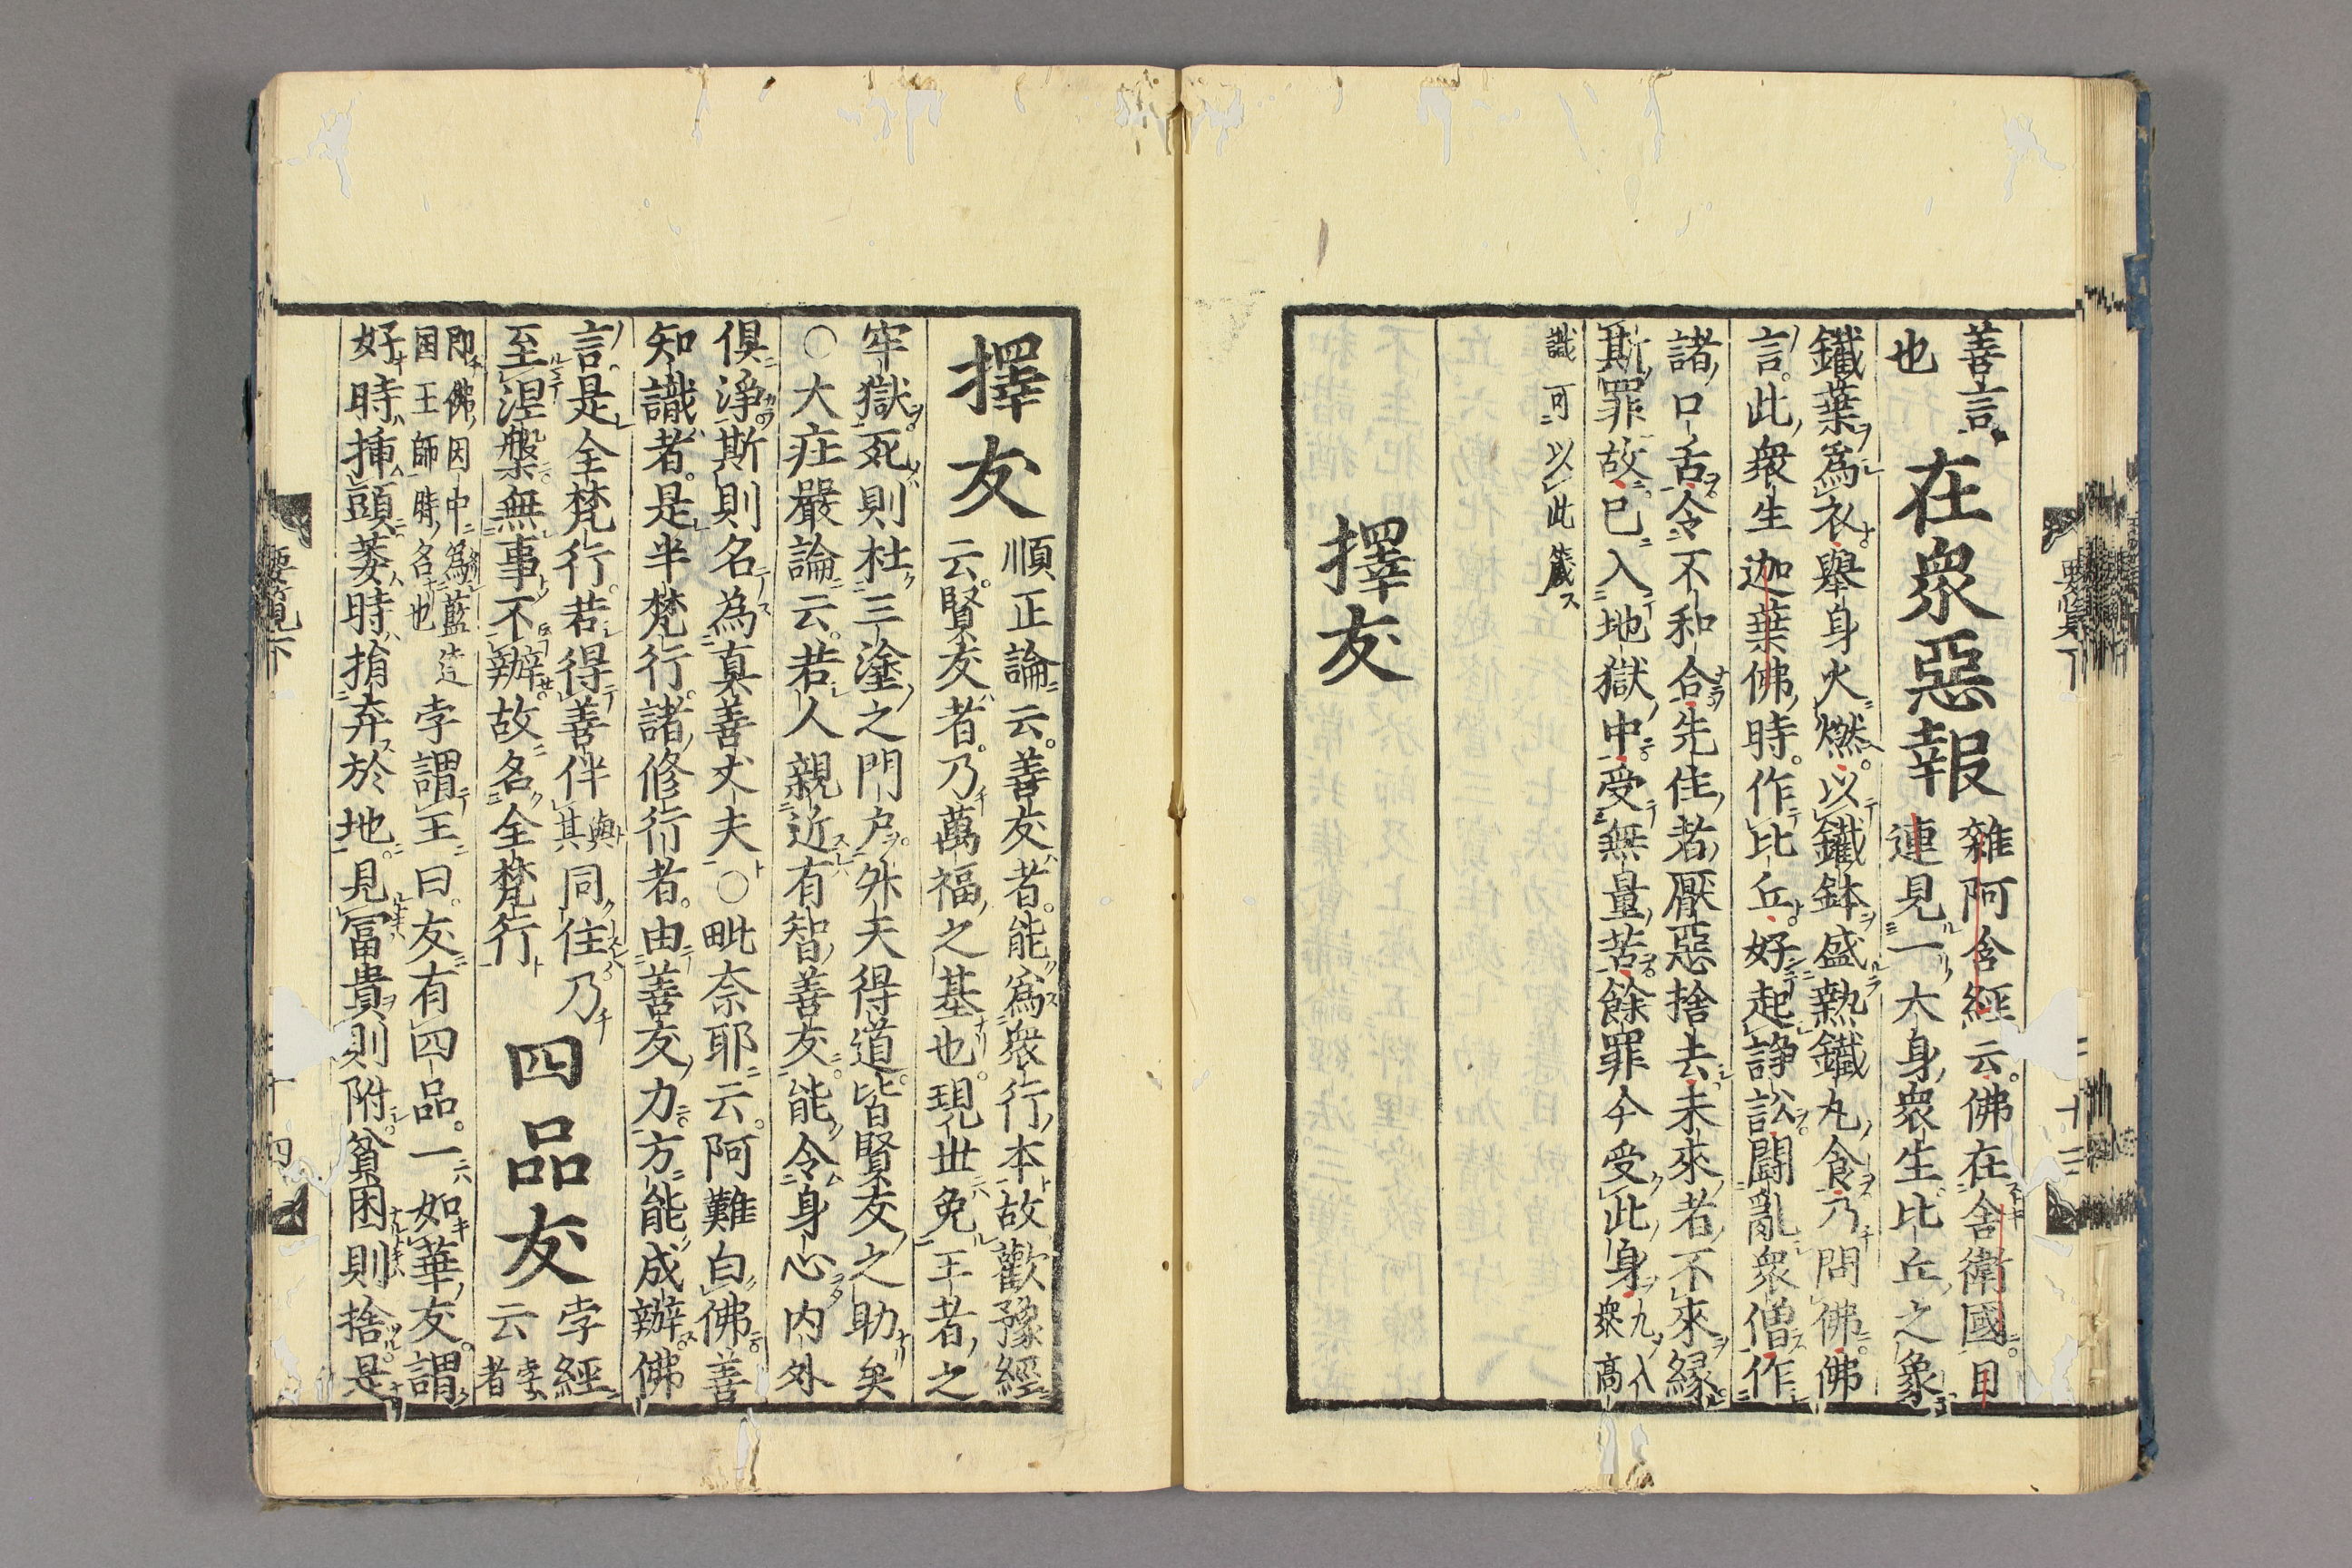 善言
也
在衆惡報
雜阿含經云佛在舍衛國目
連見一大身衆生比丘之象
鐵葉爲衣舉身火燃以鐵鉢盛熱鐵丸食乃問佛佛
言此衆生迦葉佛時作比丘好起諍訟鬪亂衆僧作
諸口舌令不和合先住者厭惡捨去未來者不來緣
斯罪故已入地獄中受無量苦餘罪今受此身
凢入
衆高
識可以此箴
擇友
擇友
順正論云善友者能爲衆行本故歡豫經
云賢友者乃萬福之基也現世免王者之
牢獄死則杜三塗之門戸外夫得道皆賢友之助矣
○大莊嚴論云若人親近有智善友能令身心内外
俱淨斯則名為真善丈夫○毗奈耶云阿難白佛善
知識者是半梵行諸修行者由善友力方能成辦佛
言是全梵行若得善伴
與
其
同住乃
至涅槃無事不辦故名全梵行
四品友
孛經
云
孛
者
即佛因中為藍達
囯王師時名也
孛謂王曰友有四品一如華友謂
好時揷頭萎時捐弃於地見冨貴則附貧困則捨是
要覧下